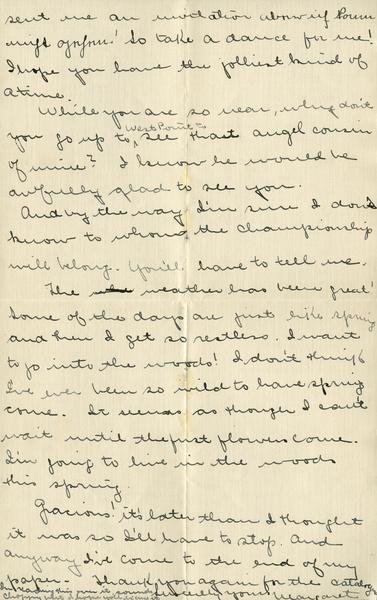 sent me an invitation
So take a dance for me!
I hope you have the jolliest kind of
a time.
While you are so near, why don't
you go up to West Point to see that angel cousin
of mine? I know he would be
awfully glad to see you.
And by the way I'm sure I don't
know to whom the championship
will belong. You'll have to tell me.
The weather has been great!
Some of the days are just like spring
and then I get so restless. I want
to go into the woods! I don't think
I've ever been so wild to have spring
come. It seems as though I can't
wait until the first flowers come.
I'm going to live in the woods
this spring.
Gracious! it's later than I thought
it was so I'll have to stop. And
anyway I've come to the end of my
paper. Thank you again for the catalog
In reading this over it sounds
Sincerely yours Margaret